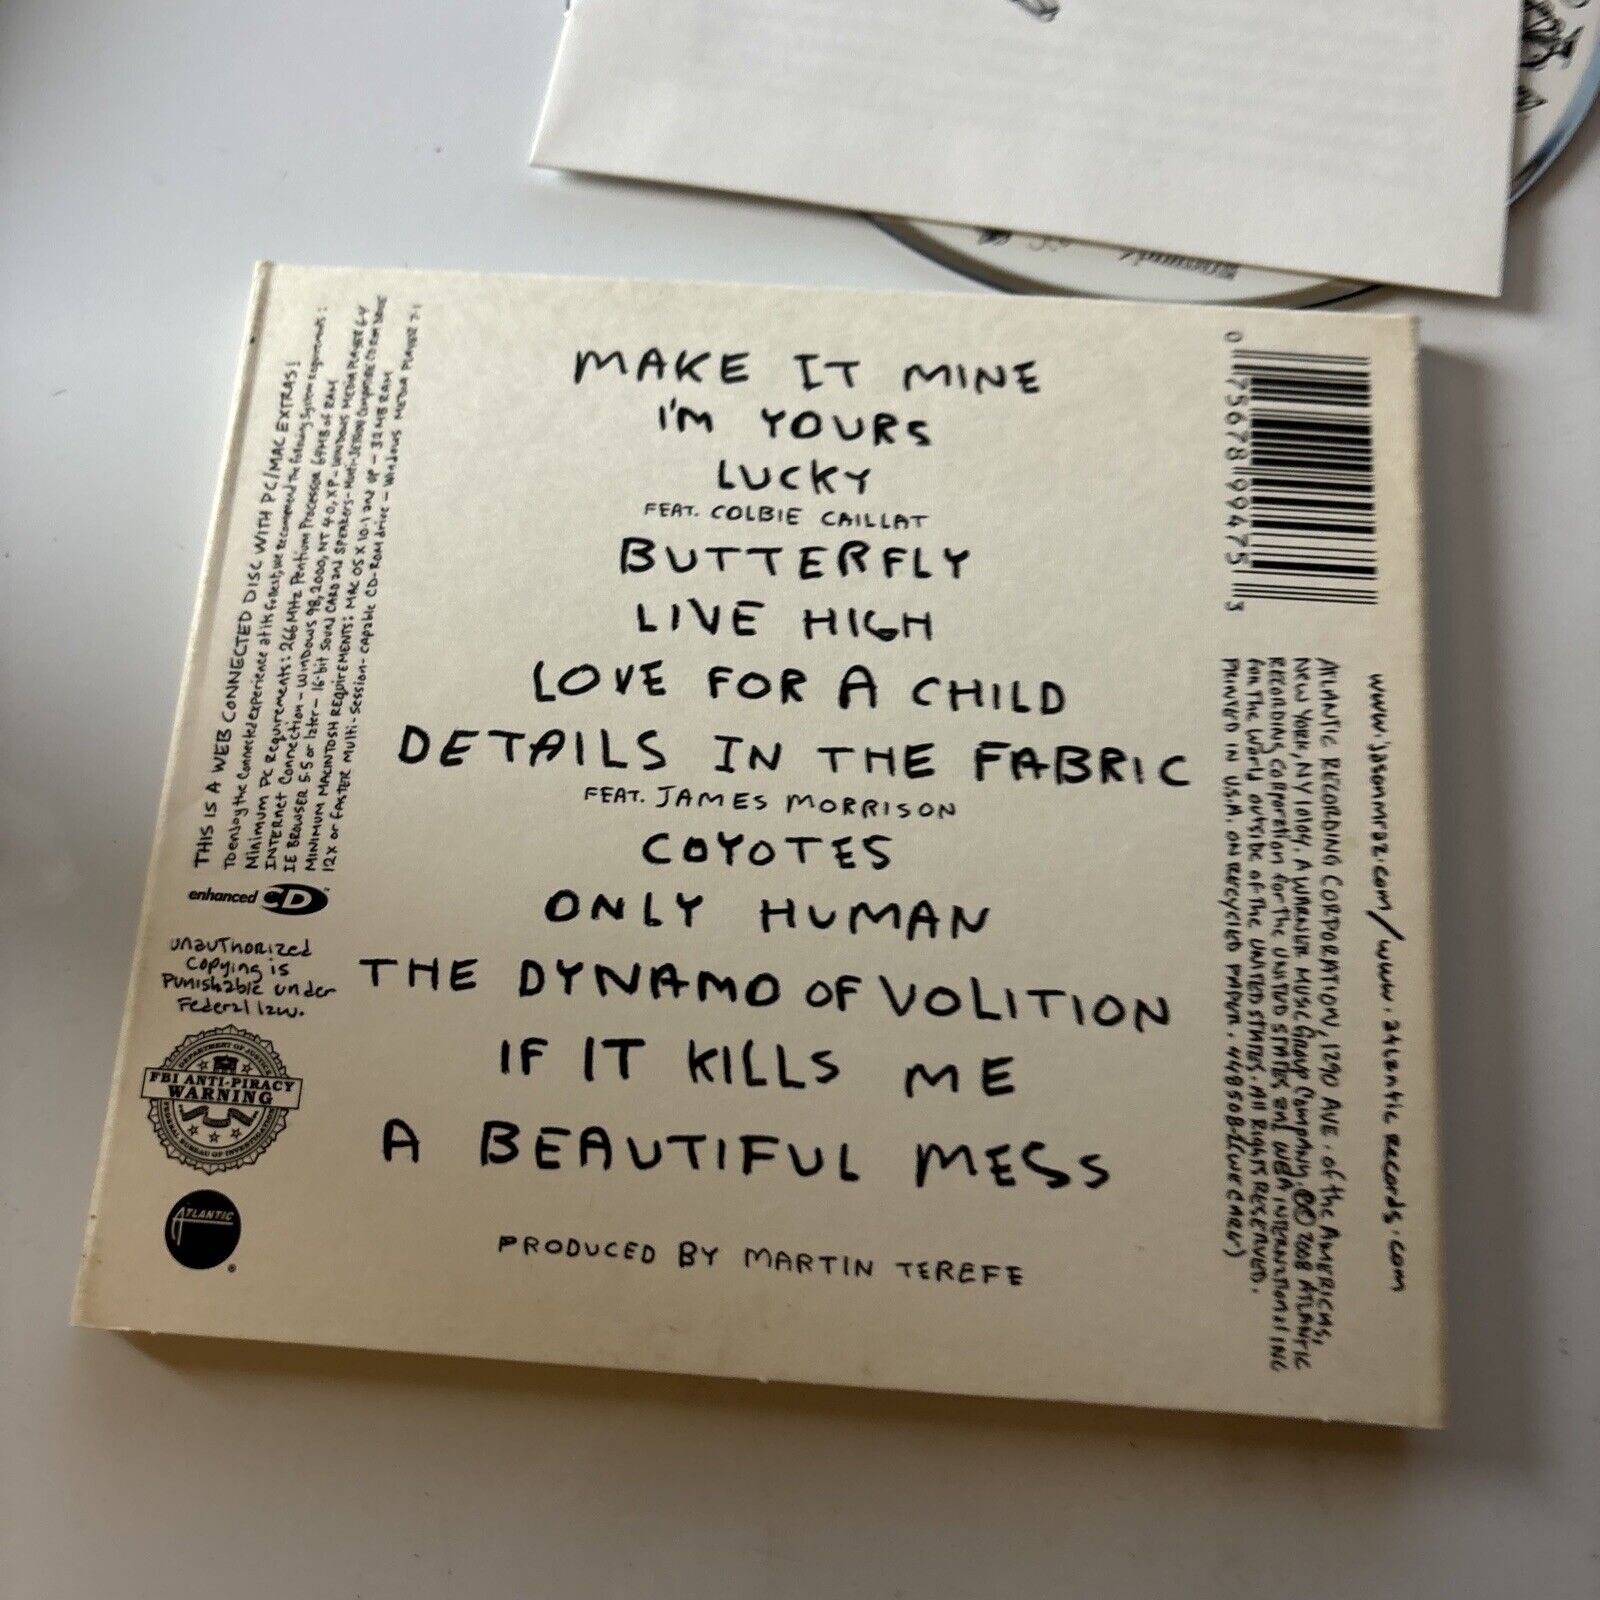 MAKE IT MINE
I'M YOURS
LUCKY
FEAT. COLBIE CAILLAT
BUTTERFLY
LIVE HIGH
LOVE FOR A CHILD
DETAILS IN THE FABRIC
FEAT. JAMES MORRISON
COYOTES
ONLY HUMAN
THE DYNAMO OF VOLITION
IF IT KILLS ME
A BEAUTIFUL MESS
PRODUCED BY MARTIN TEREFE
THIS IS A WEB CONNECTED DISC WITH PC/MAC EXTRAS!
To enjoy the Connected experience at its fullest, we recommend the following System requirements:
Minimum PC Requirements: 266 MHz Pentium Processor 64MB of RAM
INTERNet Connection - WINDOWS 98, 2000, NT 4.0, XP - WINDOWS MEDIA PLAYER 6.4
IE BROWSER 5.5 or later - 16-bit SOUND CARD and SPEAKERS - Multi-session Compatible
MINIMUM MACINTOSH REQUIREMENTS: MAC OS X 10.1 and up - 32 MB RAM
12X or FASTER Multi-Session-CAPABLE CD-ROM drive - Windows MEDIA PLAYER 7.1
enhanced CD
unauThorized
Copying is
Punishable under
Federal law.
DEPARTMENT OF JUSTICE
FBI ANTI-PIRACY
WARNING
FEDERAL BUREAU OF INVESTIGATION
ATLANTIC
®
0 75678 99475 3
www.jasonmraz.com/www.atlantic records.com
ATLANTIC RECORDING CORPORATION, 1290 AVE. of the AMERICAS,
NEW YORK, NY 10104. A WARNER MUSIC Group Company. ℗© 2008 ATLANTIC
RECORDING Corporation for The UNITED STATES and WEA INTERNATIONAL INC
for The World outside of the UNITED STATES. All RIGHTS RESERVED.
PRINTED IN U.S.A. ON RECYCLED PAPER.